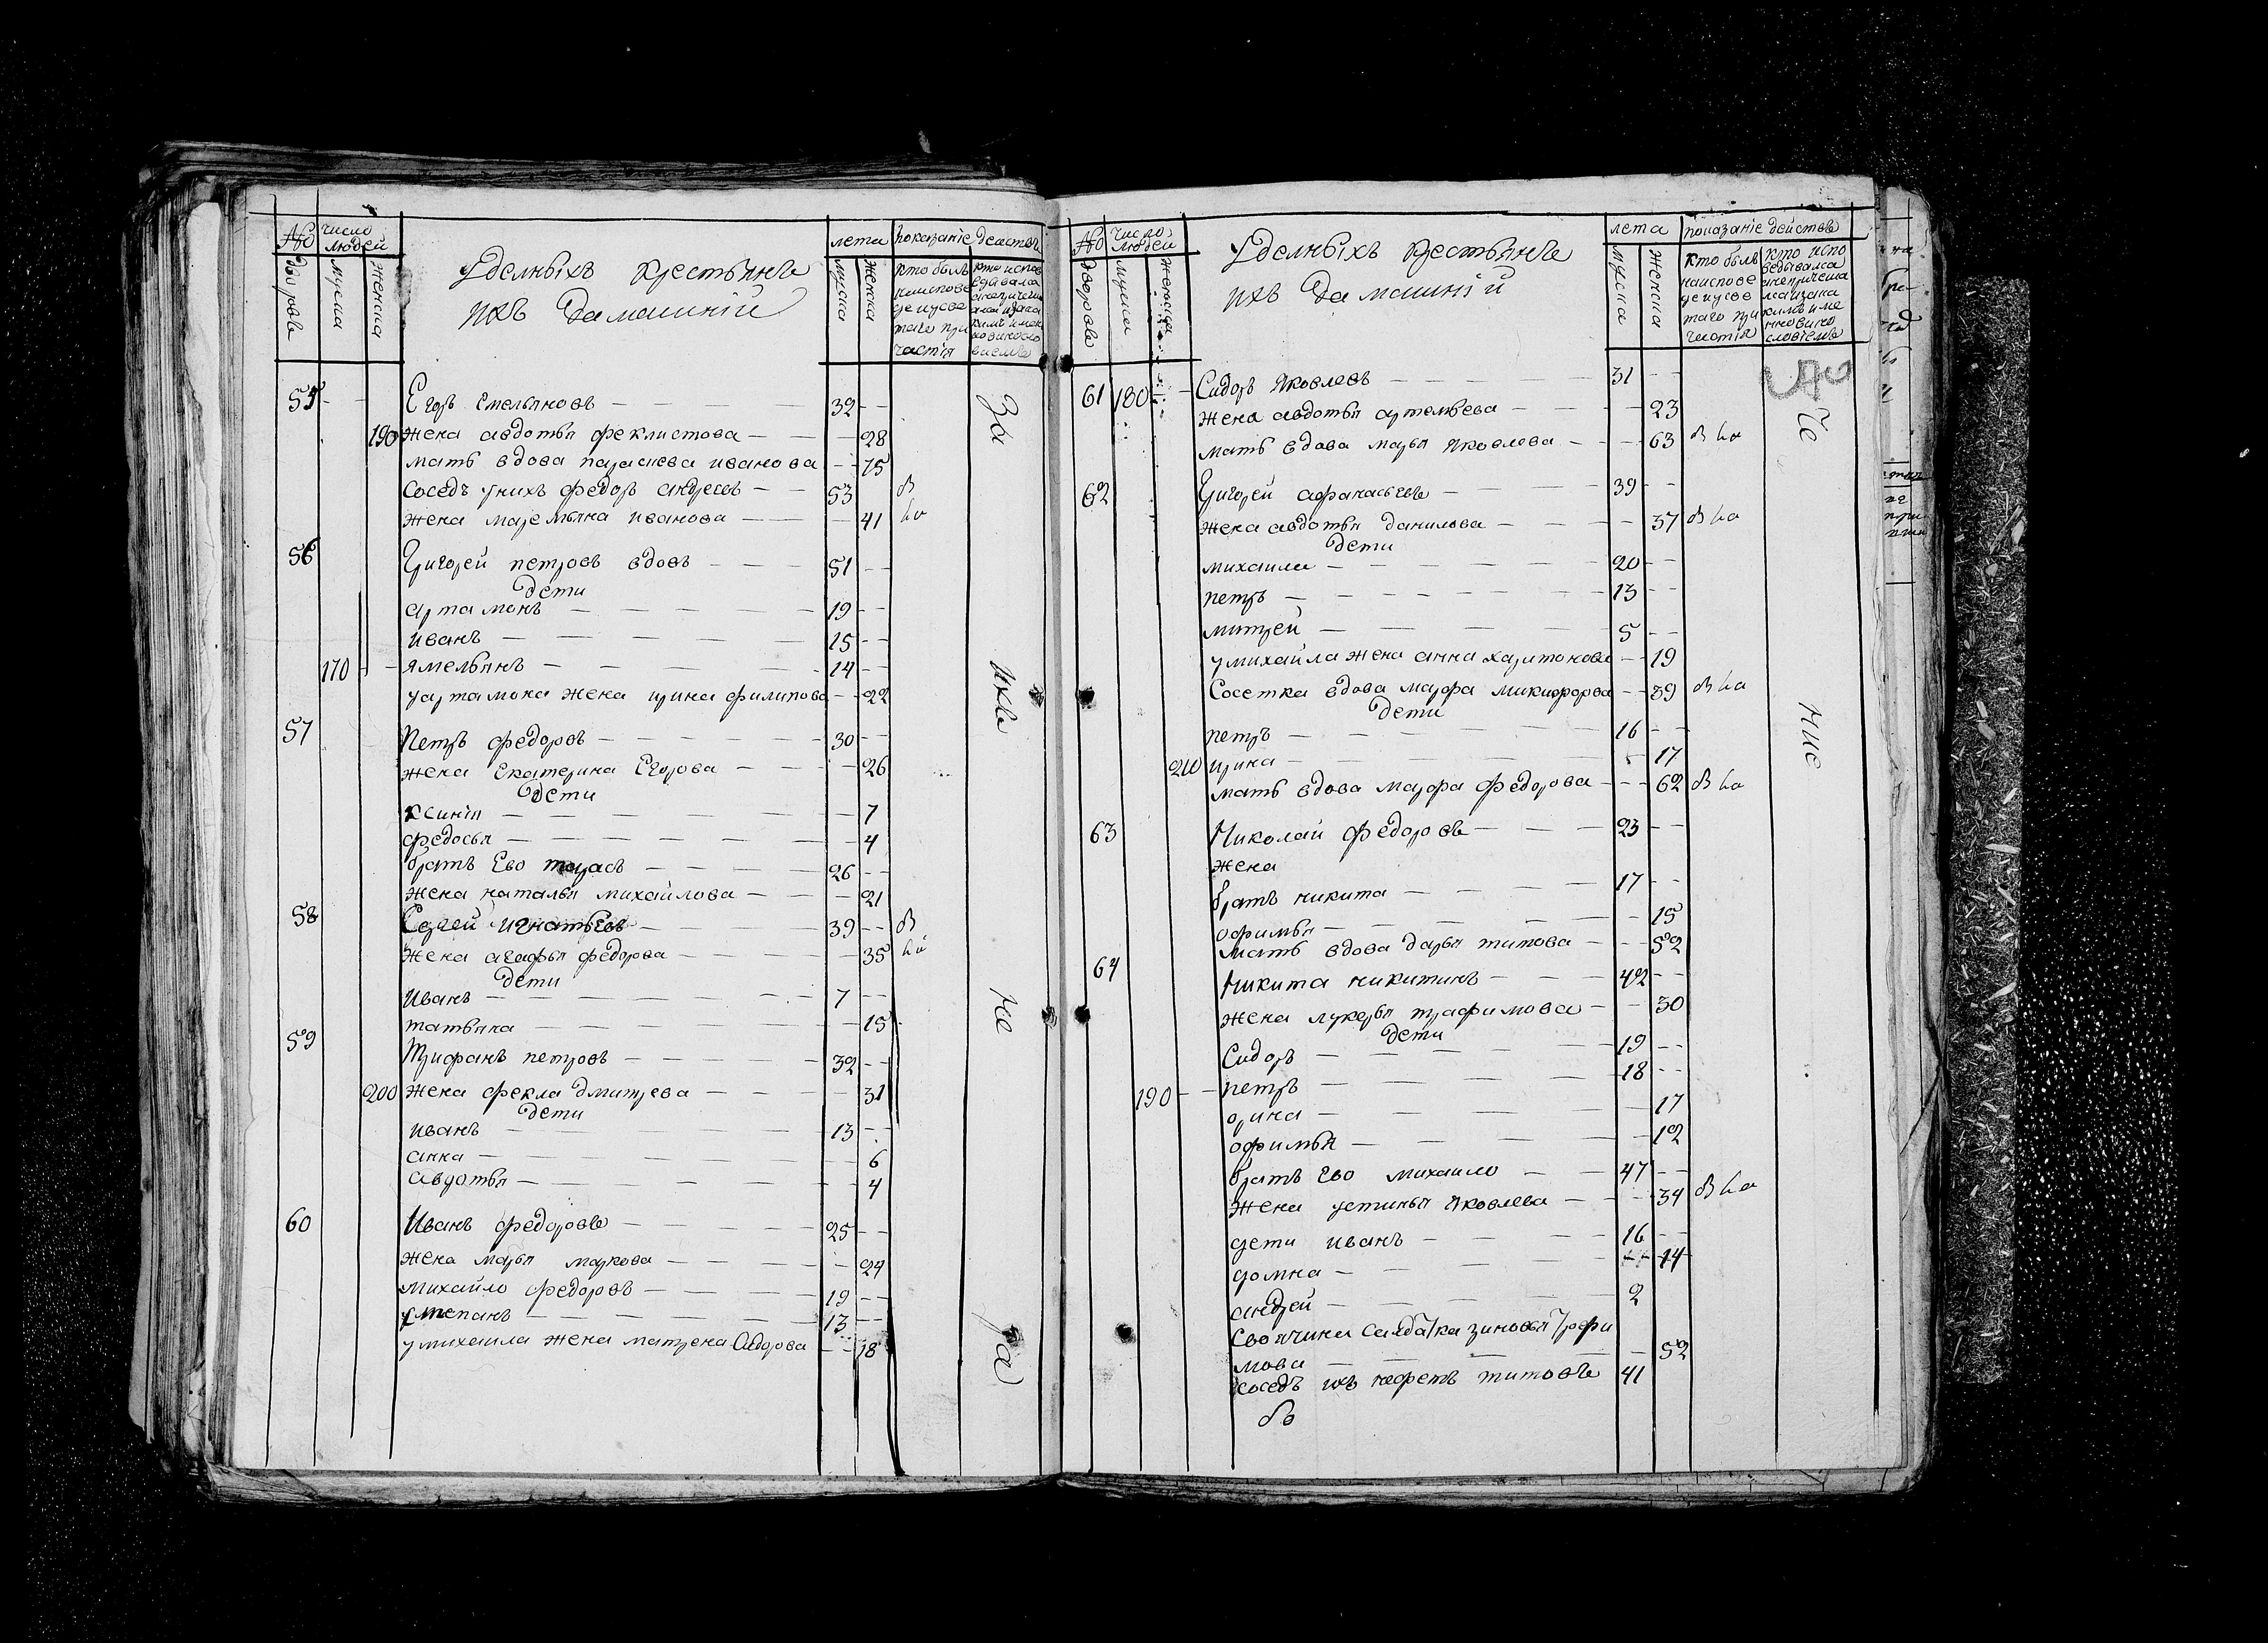 № число людей
дворовъ мужска женска
Уделныхъ крестьянъ
ихъ Дамашний
лета
мужска женска
показание действ
кто былъ наисповеде иусветаго причастия
55 Егоръ Емельяновъ 32
190 жена авдотья феклистова 28
мать вдова параскева иванова 75
Соседъ уних федоръ андреевъ 53
жена маремьяна иванова 41
56 Григорей петровъ вдовъ 51
Дети
артамонъ 19
иванъ 15
170 Ямельянъ 14
уартамона жена ирина филипова 22
57 Петръ федоровъ 30
жена Екатерина Егорова 26
Дети
ксиния 7
федосья 4
братъ Ево тарасъ 26
жена наталья михайлова 21
58 Сергей игнатьевъ 39
жена агафья федорова 35
дети
Иванъ 7
татьяна 15
59 Трифанъ петровъ 32
200 жена фекла дмитрева 31
Дети
иванъ 13
анна 6
авдотья 4
60 Иванъ федоровъ 25
жена марья маркова 24
михайло федоровъ 19
степанъ 13
умихаила жена матрена Сидорова 18
За ихъ не ра
№ число людей
дворовъ мужска женска
Уделныхъ крестьянъ
ихъ Дамашний
лета
мужска женска
показание действъ
кто былъ наисповеде иусветаго причастия
61 180 Сидоръ Яковлевъ 31
жена авдотья артемьева 23
мать вдова марья Яковлева 63
62 Григорей афанасьевъ 39
жена авдотья данилова 37
дети
михаила 20
петръ 13
митрей 5
умихайла жена анна харитонова 19
Сосетка вдова марфа микифорова 39
дети
петръ 16
210 ирина 17
мать вдова марфа федорова 62
63 Николай федоровъ 23
жена
братъ никита 17
офимья 15
мать вдова дарья титова 52
64 Никита никитинъ 42
жена лукерья трафимова 30
дети
Сидоръ 19
190 петръ 18
орина 17
офимья 12
братъ Ево михаило 47
жена устинья Яковлева 34
дети иванъ 16
домна 14
андрей 2
Своячина Салдатка зиновья Трофи
мова 52
Соседъ ихъ нефетъ титовъ 41
Че ние